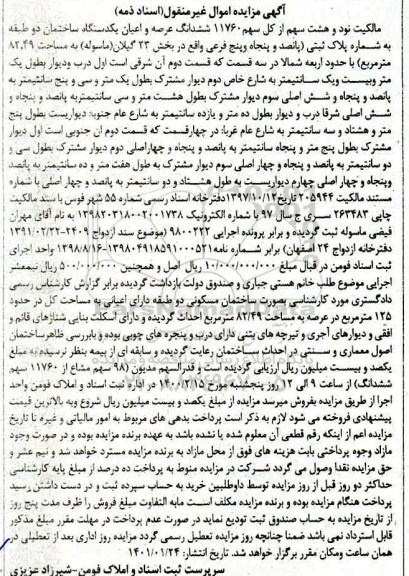 آگهی مزایده اموال غیرمنقول(اسناد ذمه)
مالکیت نود و هشت سهم از کل سهم ۱۱۷۶۰ ششدانگ عرصه و اعیان یکدستگاه ساختمان دو طبقه
به شماره پلاک ثبتی (پانصد و پنجاه وپنج فرعی واقع در بخش ۲۳ گیلان(ماسوله) به مساحت ۸۲.۴۹
مترمربع) با حدود اربعه شمالا در سه قسمت که قسمت دوم آن شرقی است اول درب ودیوار بطول یک
متر وبیست ویک سانتیمتر به شارع خاص دوم دیوار مشترک بطول یک متر و سی و پنج سانتیمتر به
پانصد و پنجاه و شش اصلی سوم دیوار مشترک بطول هشت متر و سی سانتیمتربه پانصد و پنجاه و
شش اصلی شرقا درب و دیوار بطول ده متر و یازده سانتیمتر به شارع عام جنوبا: دیواریست بطول پنج
متر و هشتاد و سه سانتیمتر به شارع عام غربا: در چهارقسمت که قسمت دوم آن جنوبی است اول دیوار
مشترک بطول پنج متر و پنجاه سانتیمتر به پانصد و پنجاه و چهاراصلی دوم دیوار مشترک بطول سی و
دو سانتیمتر به پانصد و پنجاه و چهار اصلی سوم دیوار مشترک به طول هفت متر و ده سانتیمتر به پانصد
وپنجاه و چهار اصلی چهارم دیواریست به طول هشتاد و دو سانتیمتر به پانصد و چهار اصلی با شماره
مستند مالکیت ۲۰۵۹۴۴ تاریخ ۱۳۹۷/۱۰/۱۲دفترخانه اسناد رسمی شماره ۵۵ شهر فومن با سند مالکیت
چاپی ۲۶۳۴۸۳ سری ج سال ۹۷ با شماره الکترونیک ۱۳۹۸۲۰۳۱۸۰۰۲۰۰۱۷۳۸ به نام آقای مهران
فیضی ماسوله ثبت گردیده و برابر پرونده اجرایی ۹۸۰۰۲۲۲ (موضوع سند ازدواج ۲۴۰۹-۱۳۹۱/۰۲/۲۲
دفترخانه ازدواج ۲۴ اصفهان) برابر شماره نامه ۱۳۹۸۰۴۹۱۸۵۹۱۰۰۰۵۲۱-۱۳۹۸/۸/۱۶ واحد اجرای
ثبت اسناد فومن در قبال مبلغ ۱۰/۰۰۰/۰۰۰/۰۰۰ ریال اصل و همچنین ۵۰۰/۰۰۰/۰۰۰ ریال نیمعشر
اجرایی موضوع طلب خانم هستی جباری و صندوق دولت بازداشت گردیده برابر گزارش کارشناس رسمی
دادگستری مورد کارشناسی بصورت ساختمان مسکونی دو طبقه دارای اعیانی به مساحت کل در حدود
۱۲۵ مترمربع در عرصه به مساحت ۸۲.۴۹مترمربع احداث گردیده و دارای اسکلت بنایی شناژهای قائم و
افقی و دیوارهای آجری و تیرچه های بتنی دارای درب و پنجره های چوبی بوده و بابررسی ظاهرساختمان
اصول معماری و سنتی در احداث ساختمان رعایت گردیده و سابقه ای از بیمه بنظر نرسیده به مبلغ
یکصد و بیست میلیون ریال ارزیابی گردیده است و قدرالسهم مدیون (۹۸ سهم مشاع از ۱۱۷۶۰ سهم
ششدانگ) از ساعت ۹ الی ۱۲ روز پنجشنبه مورخ ۱۴۰۰/۲/۱۵ در اداره ثبت اسناد و املاک فومن واحد
اجرا از طریق مزایده بفروش میرسد مزایده از مبلغ یکصد و بیست میلیون ریال شروع وبه بالاترین قیمت
پیشنهادی فروخته می شود لازم به ذکر است پرداخت بدهی های مربوط به امور مالیاتی و غیره تا تاریخ
مزایده اعم از اینکه رقم قطعی آن معلوم شده یا نشده باشد به عهده برنده مزایده بوده و در صورت وجود
مازاد وجوه پرداختی بابت هزینه های فوق از محل مازاد به برنده مزایده مسترد خواهد شد و نیم عشر و
حق مزایده نقدا وصول می گردد شرکت در مزایده منوط به پرداخت ده درصد از مبلغ پایه کارشناسی
حداکثر دو روز قبل از روز مزایده توسط داوطلبین خرید به حساب سپرده ثبت و در دست داشتن رسید
پرداخت هنگام مزایده بوده و برنده مزایده مکلف است مابه التفاوت مبلغ فروش را ظرف مدت پنج روز
از تاریخ مزایده به حساب صندوق ثبت تودیع نماید در صورت عدم پرداخت در مهلت مقرر مبلغ مذکور
قابل استرداد نمی باشد ضمنا چنانچه روز مزایده تعطیل رسمی گردد مزایده روز اداری بعد از تعطیلی در
همان ساعت ومکان مقرر برگزار خواهد شد. تاریخ انتشار: ۱۴۰۱/۰۱/۲۴
سرپرست ثبت اسناد و املاک فومن-شیرزاد عزیزی